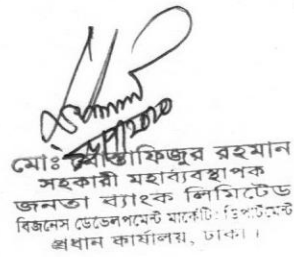 মোঃ মোস্তাফিজুর রহমান
সহকারী মহাব্যবস্থাপক
জনতা ব্যাংক লিমিটেড
বিজনেস ডেভেলপমেন্ট মার্কেটিং ডিপার্টমেন্ট
প্রধান কার্যালয়, ঢাকা।